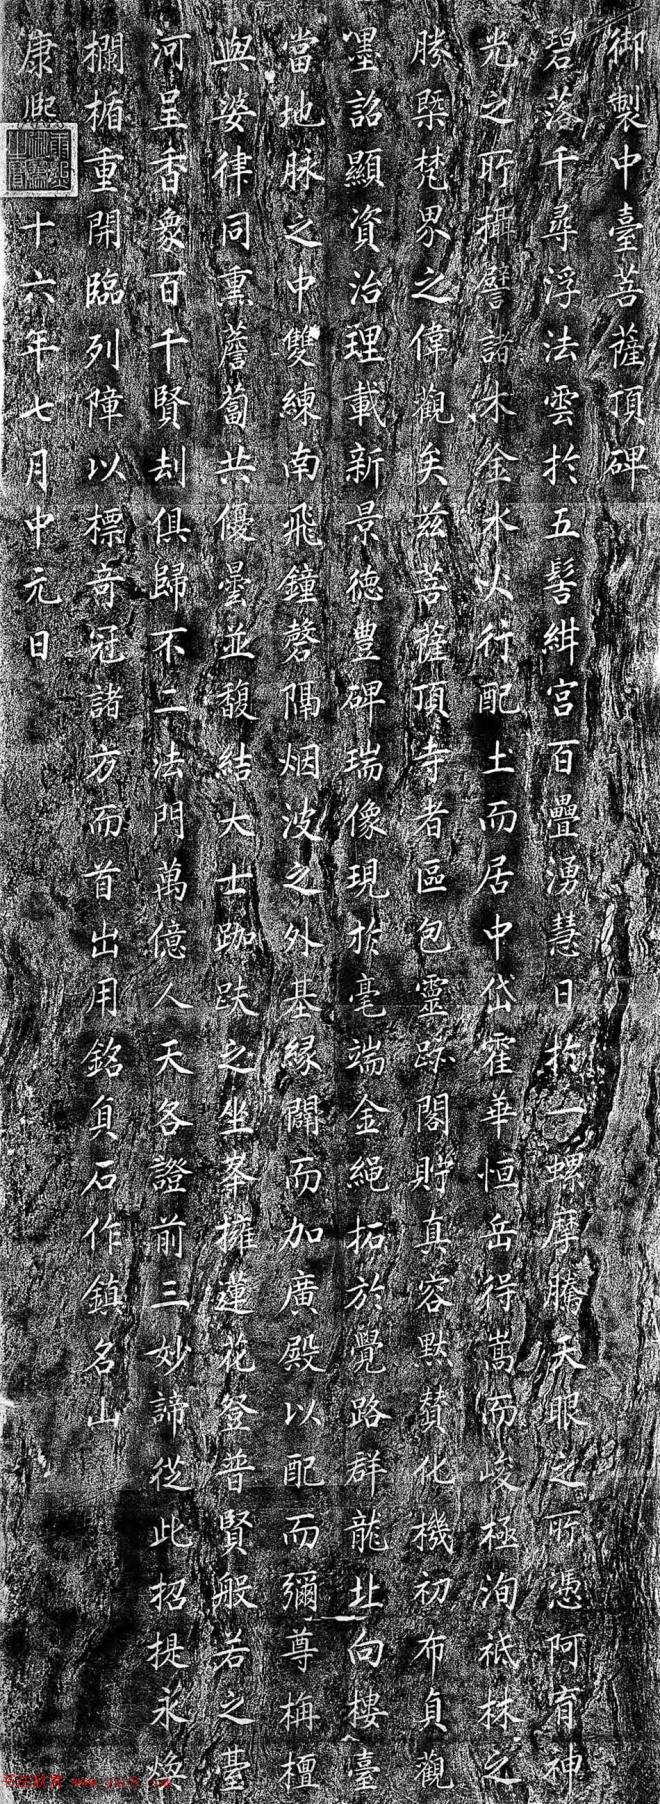 御製中臺菩薩頂碑
碧落千尋浮法雲於五髻紺宮百疊湧慧日於一螺摩騰天眼之所憑阿育神
光之所攝譬諸木金水火行配土而居中岱霍華恒岳得嵩而峻極洵祇林之
勝槩梵界之偉觀矣兹菩薩頂寺者區包靈跡閣貯真容黙賛化機初布貞觀
墨詔顯資治理載新景德豐碑瑞像現於毫端金繩拓於覺路群龍北向樓臺
當地脉之中雙練南飛鐘磬隔烟波之外基緣闢而加廣殿以配而彌尊栴檀
與婆律同熏薝蔔共優曇並馥結大士跏趺之坐峯擁蓮花登普賢般若之臺
河呈香象百千賢刦俱歸不二法門萬億人天各證前三妙諦從此招提永煥
欄楯重開臨列障以標奇冠諸方而首出用銘貞石作鎮名山
康熙 十六年七月中元日
www.yac8.com